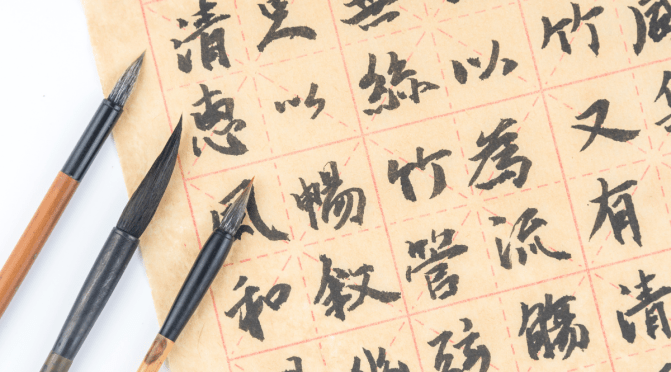 竹又有清
以為流觴
無絲竹管弦
足以暢敘
清惠風和